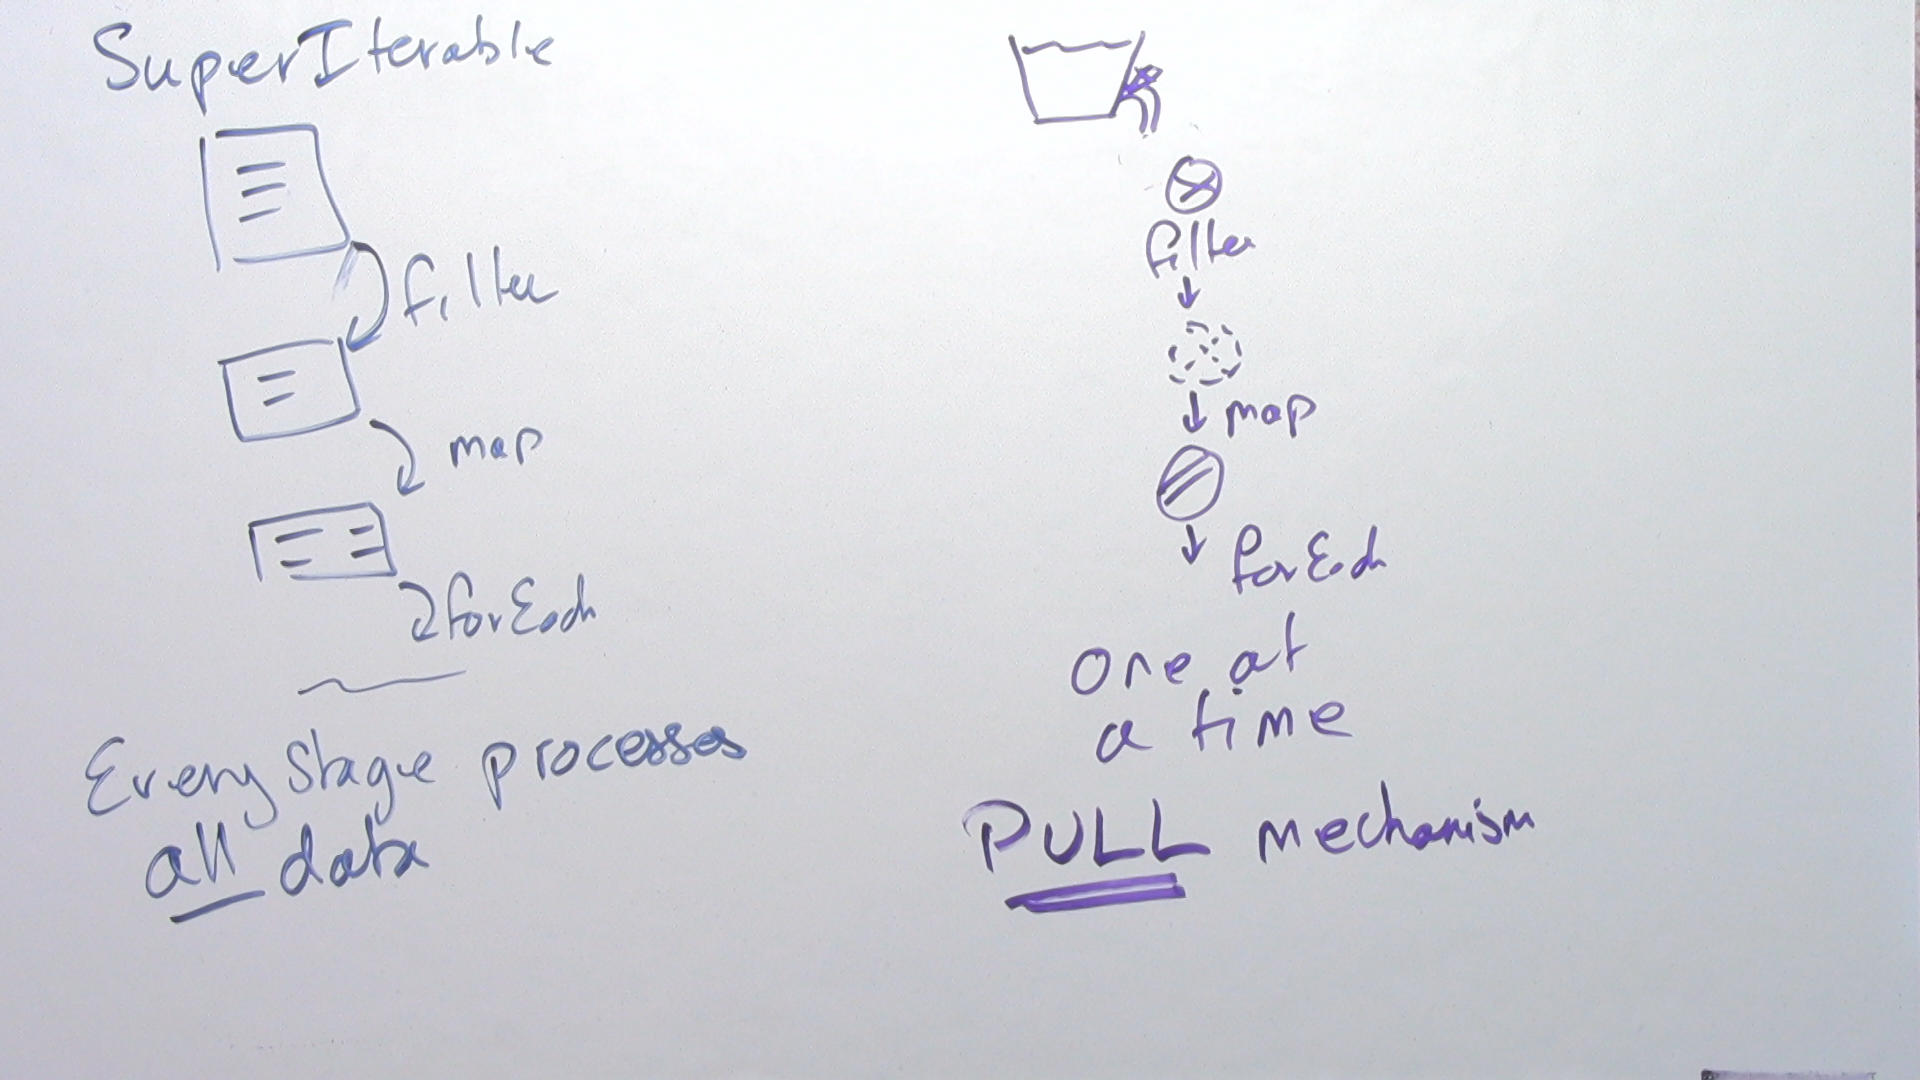 SuperIterable
filter
map
forEach
Every stage processes
all data
filter
map
forEach
one at
a time
PULL mechanism